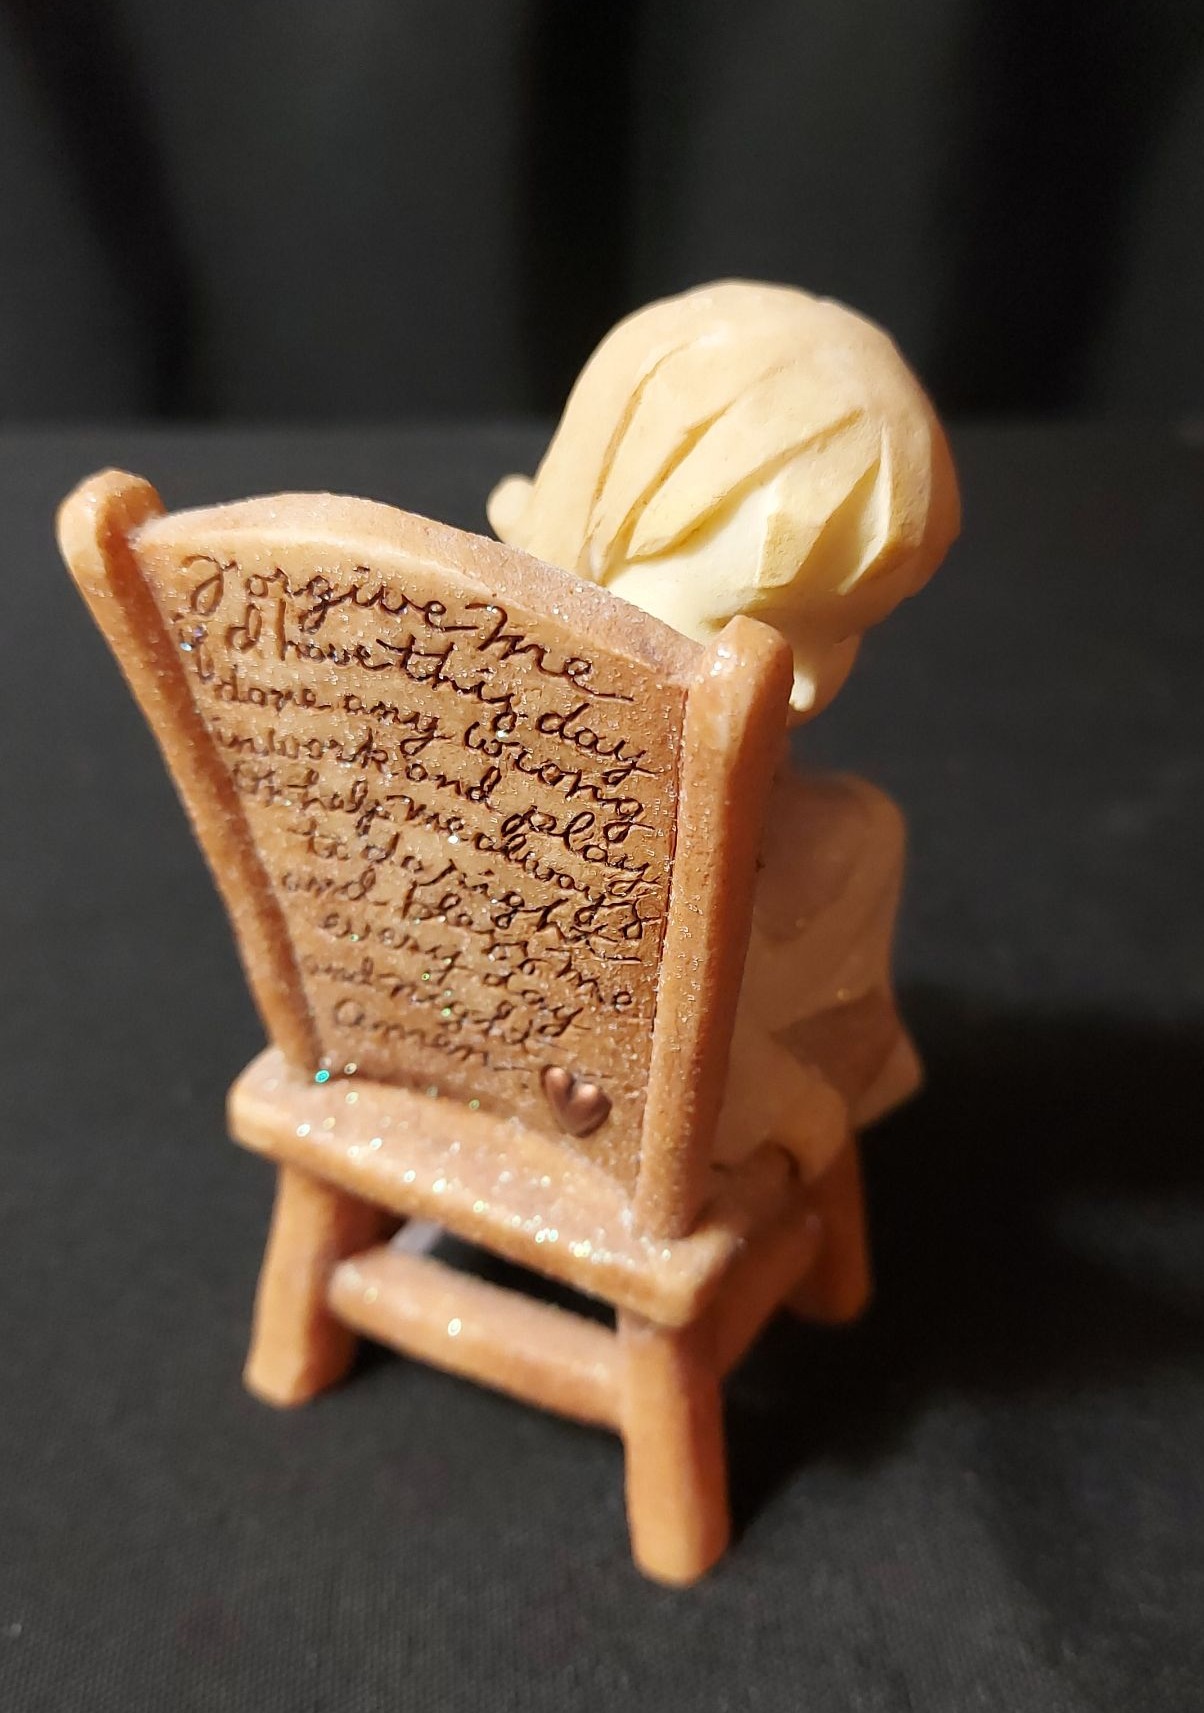 Forgive me
if I have this day
done any wrong
in work and play
Oh help me always
to do right
and bless me
every day
and night
Amen